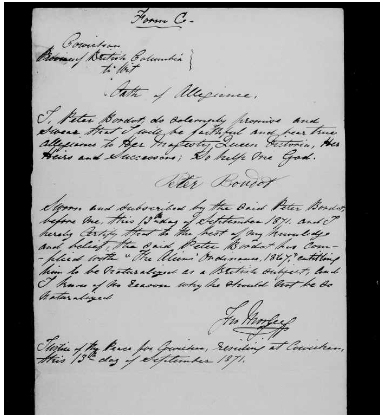 Form C.
Cowichan
Province of British Columbia
to Wit
Oath of Allegiance.
I, Peter Bordot, do solemnly promise and
Swear that I will be faithful and bear true
allegiance to Her Majesty Queen Victoria, Her
Heirs and Successors; So help me God.
Peter Bordot
Sworn and subscribed by the said Peter Bordot,
before me, this 13th day of September 1871. and I
hereby Certify that to the best of my knowledge
and belief, the said, Peter Bordot has Com-
plied with "The Aliens Ordinance, 1867," entitling
him to be Naturalized as a British subject, and
I know of no reason why he should not be so
Naturalized
Jno Morley
Justice of the Peace for Cowichan, residing at Cowichan,
this 13th day of September 1871.